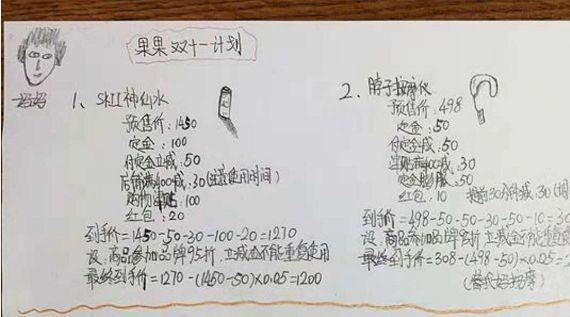 果果双十一计划
妈妈
1、SKII神仙水
预售价：1450
定金：100
付定金立减：50
店铺满400减：30(注意使用时间)
购物津贴：100
红包：20
到手价=1450-50-30-100-20=1270
设：商品参加品牌95折，立减金不能重复使用
最终到手价=1270-(1450-50)×0.05=1200
2、脖子按摩仪
预售价：498
定金：50
付定金减：50
满400减：30
定金膨胀：50
红包：10 提前30分钟减：30
到手价=498-50-50-30-50-10=30
设：商品参加品牌 折，立减金不能重复使
最终到手价=308-(498-50)×0.05=2
(替我妈按摩)